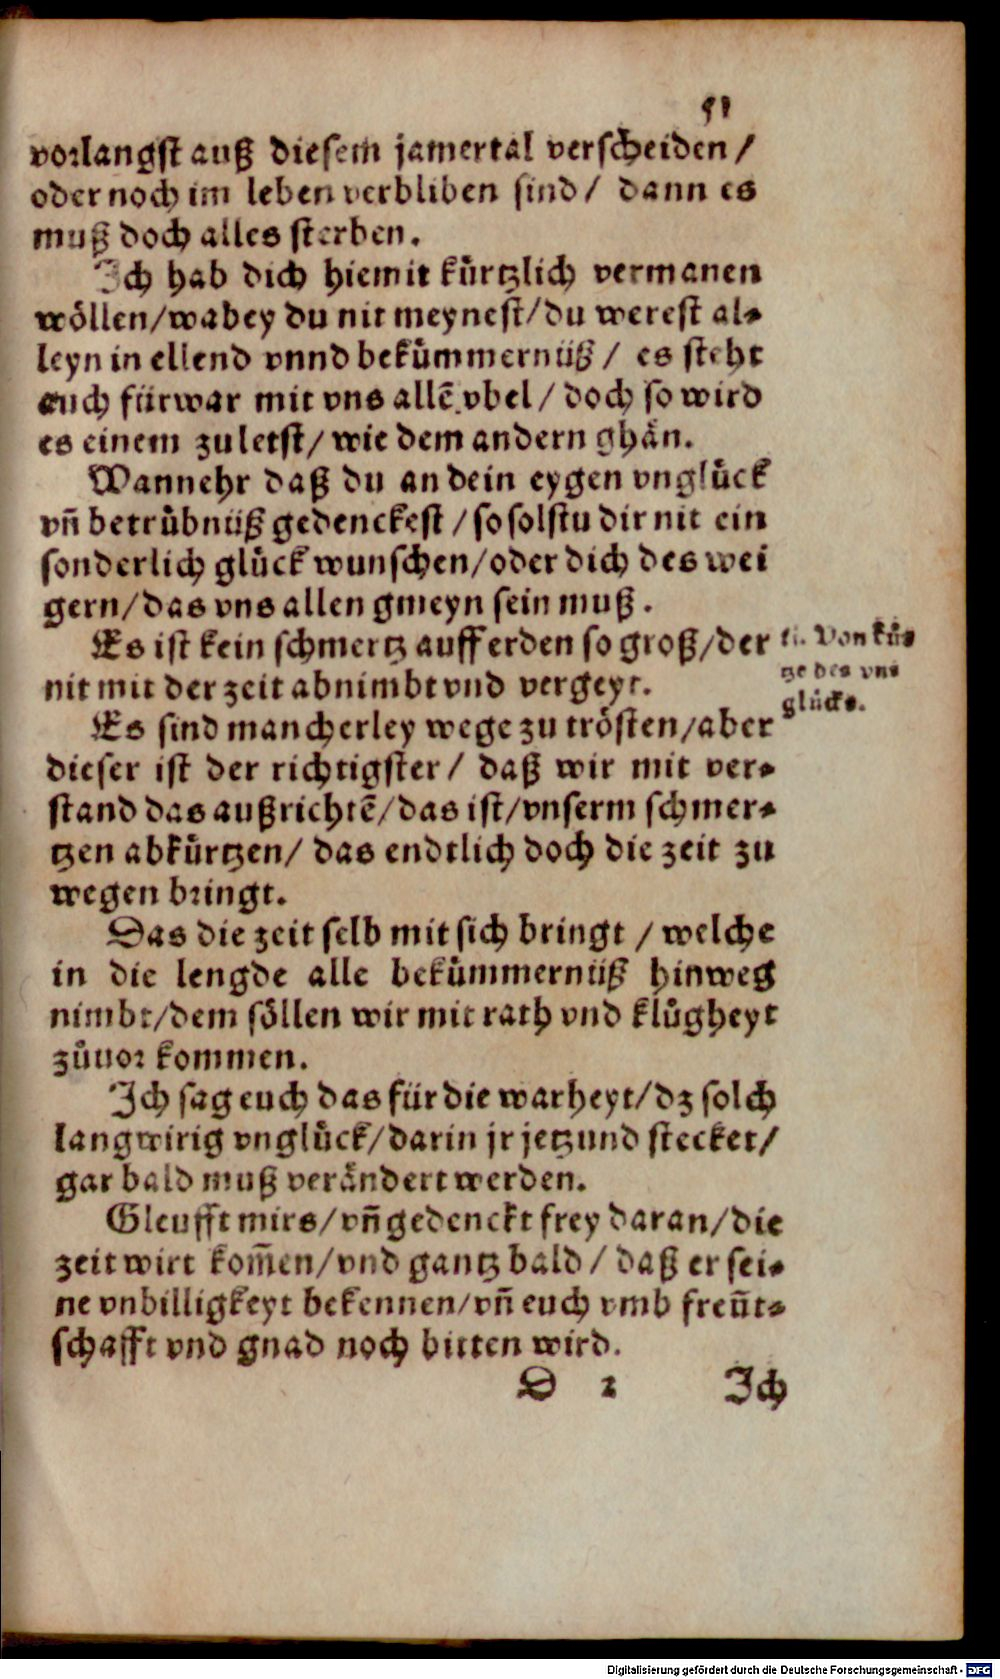 51
vorlangst auß diesem jamertal verscheiden /
oder noch im leben verbliben sind / dann es
muß doch alles sterben.
Ich hab dich hiemit kürtzlich vermanen
wöllen/wabey du nit meynest/du werest al-
leyn in ellend vnnd bekümmernüß / es steht
auch fürwar mit vns allē vbel / doch so wird
es einem zuletst/ wie dem andern ghän.
Wannehr daß du an dein eygen vnglück
vñ betrübnüß gedenckest / so solstu dir nit ein
sonderlich glück wunschen/oder dich des wei
gern/das vns allen gmeyn sein muß.
Es ist kein schmertz auff erden so groß/der
nit mit der zeit abnimbt vnd vergeyt.
Von kür
tze des vn-
glücks.
Es sind mancherley wege zu trösten/aber
dieser ist der richtigster / daß wir mit ver-
stand das außrichtē/das ist/vnserm schmer-
tzen abkürtzen/ das endtlich doch die zeit zu
wegen bringt.
Das die zeit selb mit sich bringt / welche
in die lengde alle bekümmernüß hinweg
nimbt/dem söllen wir mit rath vnd klůgheyt
zůuor kommen.
Ich sag euch das für die warheyt/dz solch
langwirig vnglück/darin jr jetzund stecket/
gar bald muß verändert werden.
Gleufft mirs/vñ gedenckt frey daran/die
zeit wirt kom̃en/vnd gantz bald / daß er sei-
ne vnbilligkeyt bekennen/vñ euch vmb freüt-
schafft vnd gnad noch bitten wird.
D 2 Ich
Digitalisierung gefördert durch die Deutsche Forschungsgemeinschaft - DFG